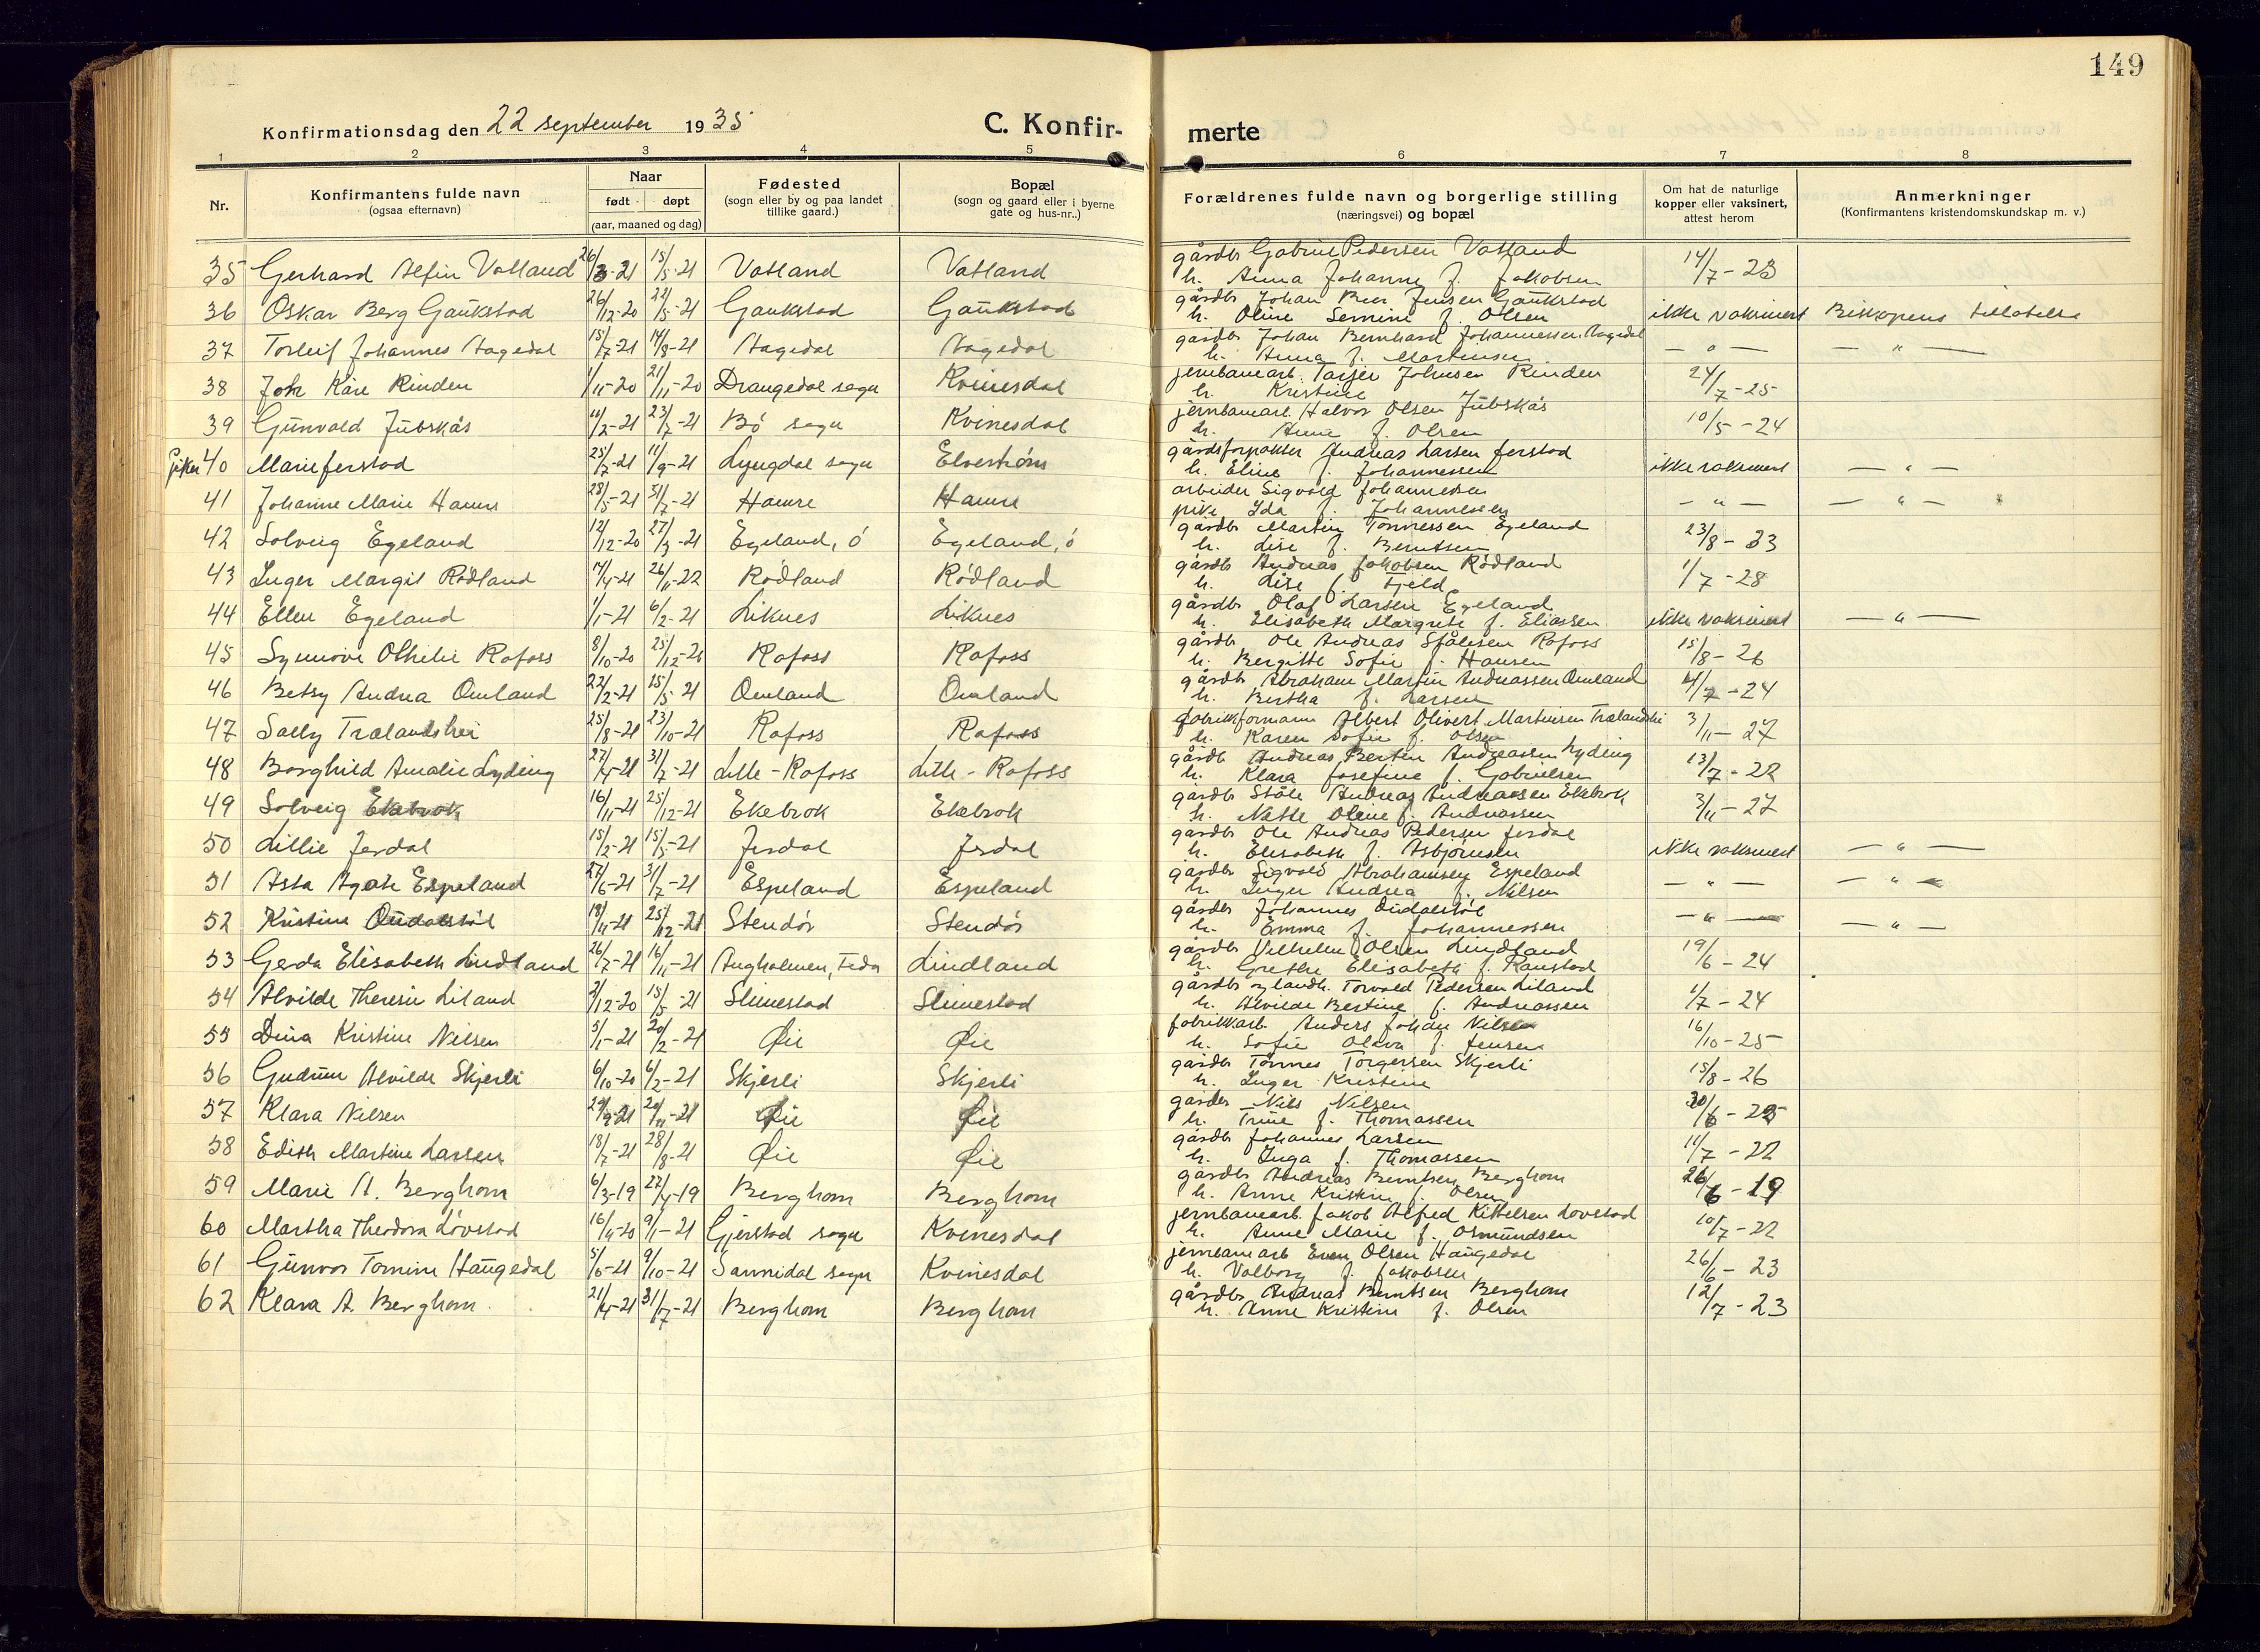 149
Konfirmationsdag den 22 september 1935
C. Konfir-
merte
1 2 3 4 5 6 7 8
Nr.
Konfirmantens fulde navn
(ogsaa efternavn)
Naar
født døpt
(aar, maaned og dag)
Fødested
(sogn eller by og paa landet
tillike gaard.)
Bopæl
(sogn og gaard eller i byerne
gate og hus-nr..)
Forældrenes fulde navn og borgerlige stilling
(næringsvei) og bopæl
Om hat de naturlige
kopper eller vaksinert,
attest herom
Anmerkninger
(Konfirmantens kristendomskundskap m. v.)
35 Gerhard Alfin Vatland 26/3-21 15/5-21 Vatland Vatland gårdbr Gabriel Pedersen Vatland 14/7-23
h. Anna Johanne f. Jakobsen
36 Oskar Berg Gaukstad 26/12-20 22/5-21 Gaukstad Gaukstad gårdbr Johan Jensen Gaukstad ikke vaksinert Biskopens tillatelse
h. Oline Semine f. Olsen
37 Torleif Johannes Aagedal 15/7-21 14/8-21 Aagedal Aagedal gårdbr Johan Bernhard Johannessen Aagedal — " — — " —
h. Anna f. Martinsen
38 Joh Kåre Rinden 1/11-20 21/11-20 Drangedal sogn Kvinesdal jernbanearb. Tarjer Johnsen Rinden 24/7-25
h. Kristine
39 Gunvald Jubskås 11/2-21 23/7-21 Bø sogn Kvinesdal jernbanearb. Halvor Olsen Jubskås 10/5-24
h. Anne f. Olsen
piker 40 Marie Jerstad 25/7-21 11/9-21 Lyngdal sogn Elvestrøm gårdsforpakter Andreas Larsen Jerstad ikke vaksinert — " —
h. Elise f. Johannessen
41 Johanne Marie Hamre 28/5-21 31/7-21 Hamre Hamre arbeider Sigvald Johannessen — " — — " —
pike Ida f. Johannessen
42 Solveig Egeland 12/12-20 27/3-21 Egeland, ø Egeland, ø gårdbr Martin Tønnessen Egeland 23/8-33
h. Lise f. Berntsen
43 Inger Margit Rødland 14/4-21 26/11-22 Rødland Rødland gårdbr Andreas Jakobsen Rødland 1/7-28
h. Lise f. Fjeld
44 Ellen Egeland 1/1-21 6/2-21 Liknes Liknes gårdbr Olaf Larsen Egeland ikke vaksinert — " —
h. Elisabeth Margrete f. Eliassen
45 Synnøve Othilie Rafoss 8/10-20 25/12-20 Rafoss Rafoss gårdbr Ole Andreas Stålesen Rafoss 15/8-26
h. Bergitte Sofie f. Hansen
46 Betsy Andrea Omland 22/2-21 15/5-21 Omland Omland gårdbr Abraham Martin Andreassen Omland 4/7-24
h. Bertha f. Larsen
47 Sally Trælandshei 25/8-21 23/10-21 Rafoss Rafoss fabrikkformann Albert Olivert Martinsen Trælandshei 3/11-27
h. Karen Sofie f. Olsen
48 Borghild Amalie Lyding 27/4-21 31/7-21 Lille-Rafoss Lille-Rafoss gårdb. Andreas Bertin Andreassen Lyding 13/7-22
h. Klara Josefine f. Gabrielsen
49 Solveig Ekebrok 16/11-21 25/12-21 Ekebrok Ekebrok gårdbr Ståle Andreas Andreassen Ekebrok 3/11-27
h. Nette Oline f. Andreassen
50 Lillie Jerdal 15/2-21 15/5-21 Jerdal Jerdal gårdbr Ole Andreas Pedersen Jerdal ikke vaksinert — " —
h. Elisabeth f. Asbjørnsen
51 Asta Agate Espeland 27/6-21 31/7-21 Espeland Espeland gårdbr Sigvald Abrahamsen Espeland — " — — " —
h. Inger Andrea f. Nilsen
52 Kristine Oudalstøl 18/11-21 25/12-21 Stendør Stendør gårdbr Johannes Oudalstøl — " — — " —
h. Emma f. Johannessen
53 Gerda Elisabeth Lindland 26/7-21 16/11-21 Angholmen, Feda Lindland gårdbr Vilhelm Olsen Lindland 19/6-24
h. Grethe Elisabeth f. Ranstad
54 Alvilde Theresie Liland 2/12-20 15/5-21 Slimestad Slimestad gårdbr og landh. Torvald Pedersen Liland 1/7-24
h. Alvilde Bertine f. Andreassen
55 Dina Kristine Nilsen 5/1-21 20/2-21 Øie Øie fabrikkarb. Anders Johan Nilsen 16/10-25
h. Sofie Olava f. Jensen
56 Gudrun Alvilde Skjerli 6/10-20 6/2-21 Skjerli Skjerli gårdbr Tønnes Torgersen Skjerli 15/8-26
h. Inger Kristine
57 Klara Nilsen 29/9-21 20/11-21 Øie Øie gårdbr Nils Nilsen 30/6-25
h. Trine f. Thomassen
58 Edith Martine Larsen 18/7-21 28/8-21 Øie Øie gårdbr Johannes Larsen 11/7-22
h. Inga f. Thomassen
59 Marie A. Berghom 6/3-19 22/4-19 Berghom Berghom gårdbr Andreas Berntsen Berghom 26/6-19
h. Anne Kristine f. Olsen
60 Martha Theodora Løvstad 16/11-20 9/1-21 Gjerstad sogn Kvinesdal jernbanearb. Jakob Alfred Kittelsen Lovstad 10/7-22
h. Anne Marie f. Osmundsen
61 Gunvor Tomine Haugedal 5/6-21 9/10-21 Sannidal sogn Kvinesdal jernbanearb Even Olsen Haugedal 26/6-23
h. Valborg f. Jakobsen
62 Klara A. Berghom 21/4-21 31/7-21 Berghom Berghom gårdbr Andreas Berntsen Berghom 12/7-23
h. Anne Kristine f. Olsen